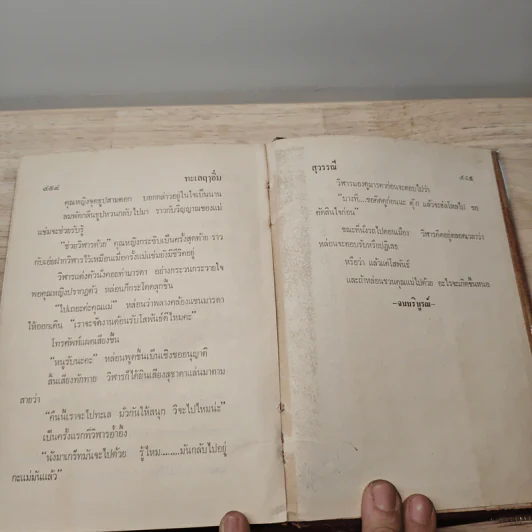 ๘๕๔ ทะเลฤาอิ่ม
คุณหญิงจุดธูปสามดอก บอกกล่าวอยู่ในใจเป็นนาน
ลมพัดกลิ่นธูปหวนกลับไปมา ราวกับวิญญาณของแม่
แช่มจะช่วยรับรู้
"ช่วยวิหารด้วย" คุณหญิงกระซิบเป็นครั้งสุดท้าย ราว
กับเอ่ยฝากวิหารไว้เหมือนเมื่อครั้งแม่แช่มยังมีชีวิตอยู่
วิหารแต่งตัวนั่งคอยท่ามารดา อย่างกระวนกระวายใจ
พอคุณหญิงปรากฏตัว หล่อนก็กระโดดลุกขึ้น
"ไปเถอะค่ะคุณแม่" หล่อนว่าพลางคล้องแขนมารดา
ให้ออกเดิน "เราจะจัดงานต้อนรับโสพันธ์ดีไหมคะ"
โทรศัพท์แผดเสียงขึ้น
"หนูรับนะคะ" หล่อนพูดขึ้นเป็นเชิงขออนุญาติ
สิ้นเสียงทักทาย วิหารก็ได้ยินเสียงสุชาดาแล่นมาตาม
สายว่า
"คืนนี้เราจะไปทะเล มัวกันให้สนุก วิจะไปไหมน่ะ"
เป็นครั้งแรกที่วิหารยํ้ายั้ง
"นังมาเกร็ทมันจะไปด้วย รู้ไหม........มันกลับไปอยู่
กะแม่มันแล้ว"
สุวรรณี ๘๕๕
วิหารมองดูมารดาก่อนจะตอบไปว่า
"บางที....ขอคิดดูก่อนนะ ตุ๊ก แล้วจะส่งโผลไป ขอ
ตัดสินใจก่อน"
ขณะที่นั่งรถไปดอนเมือง วิหารคิดอยู่ตลอดเวลาว่า
หล่อนจะตอบรับหรือปฏิเสธ
หรือว่า แล้วแต่โสพันธ์
และถ้าหล่อนชวนคุณแม่ไปด้วย อะไรจะเกิดขึ้นหนอ
-จบบริบูรณ์-